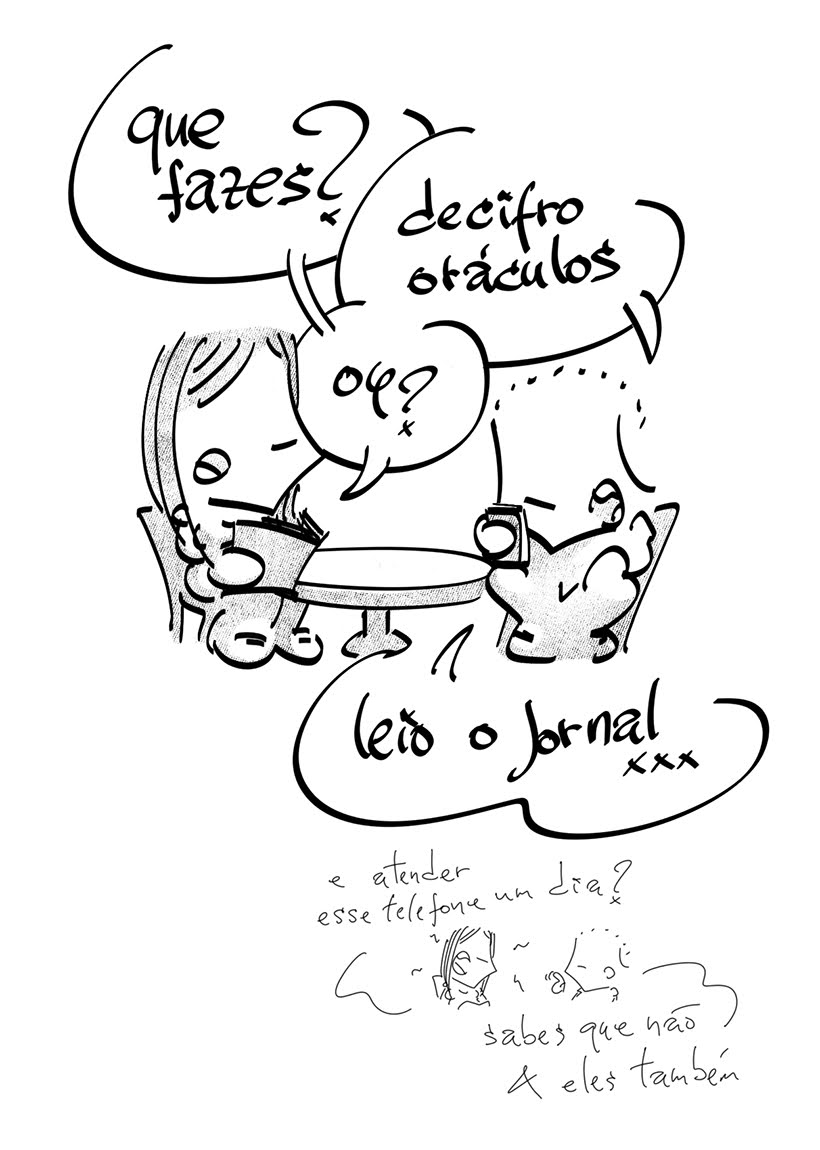 que
fazes?
decifro
oráculos
oq?
leio o jornal
xxx
e atender
esse telefone um dia?
sabes que não
& eles também